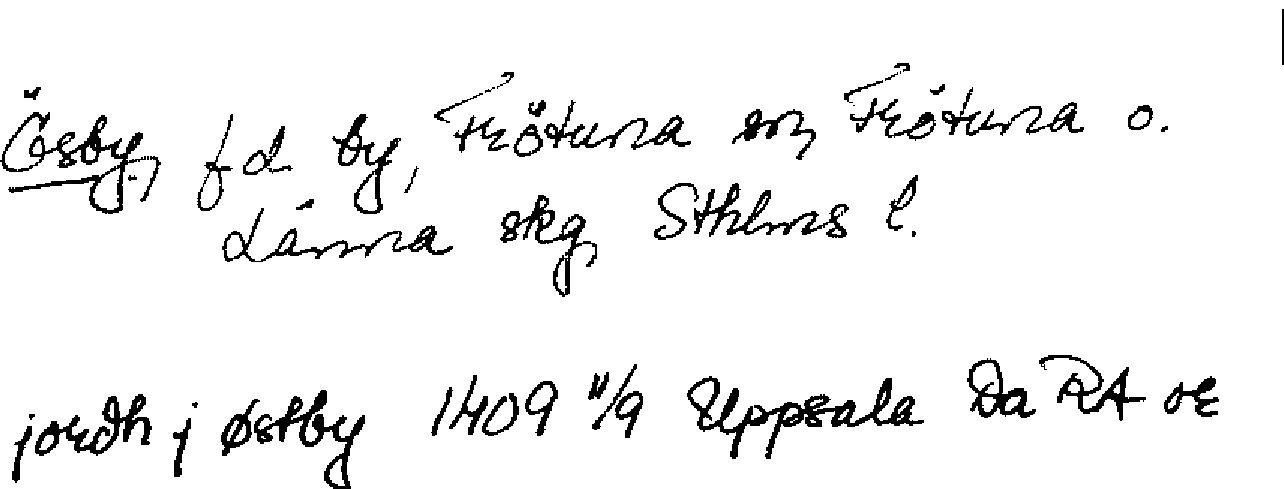 Ösby, f d by, Frötuna sn, Frötuna o.
Länna skg, Sthlms l.
jordh j østby 1409 11/9 Uppsala Da RA or